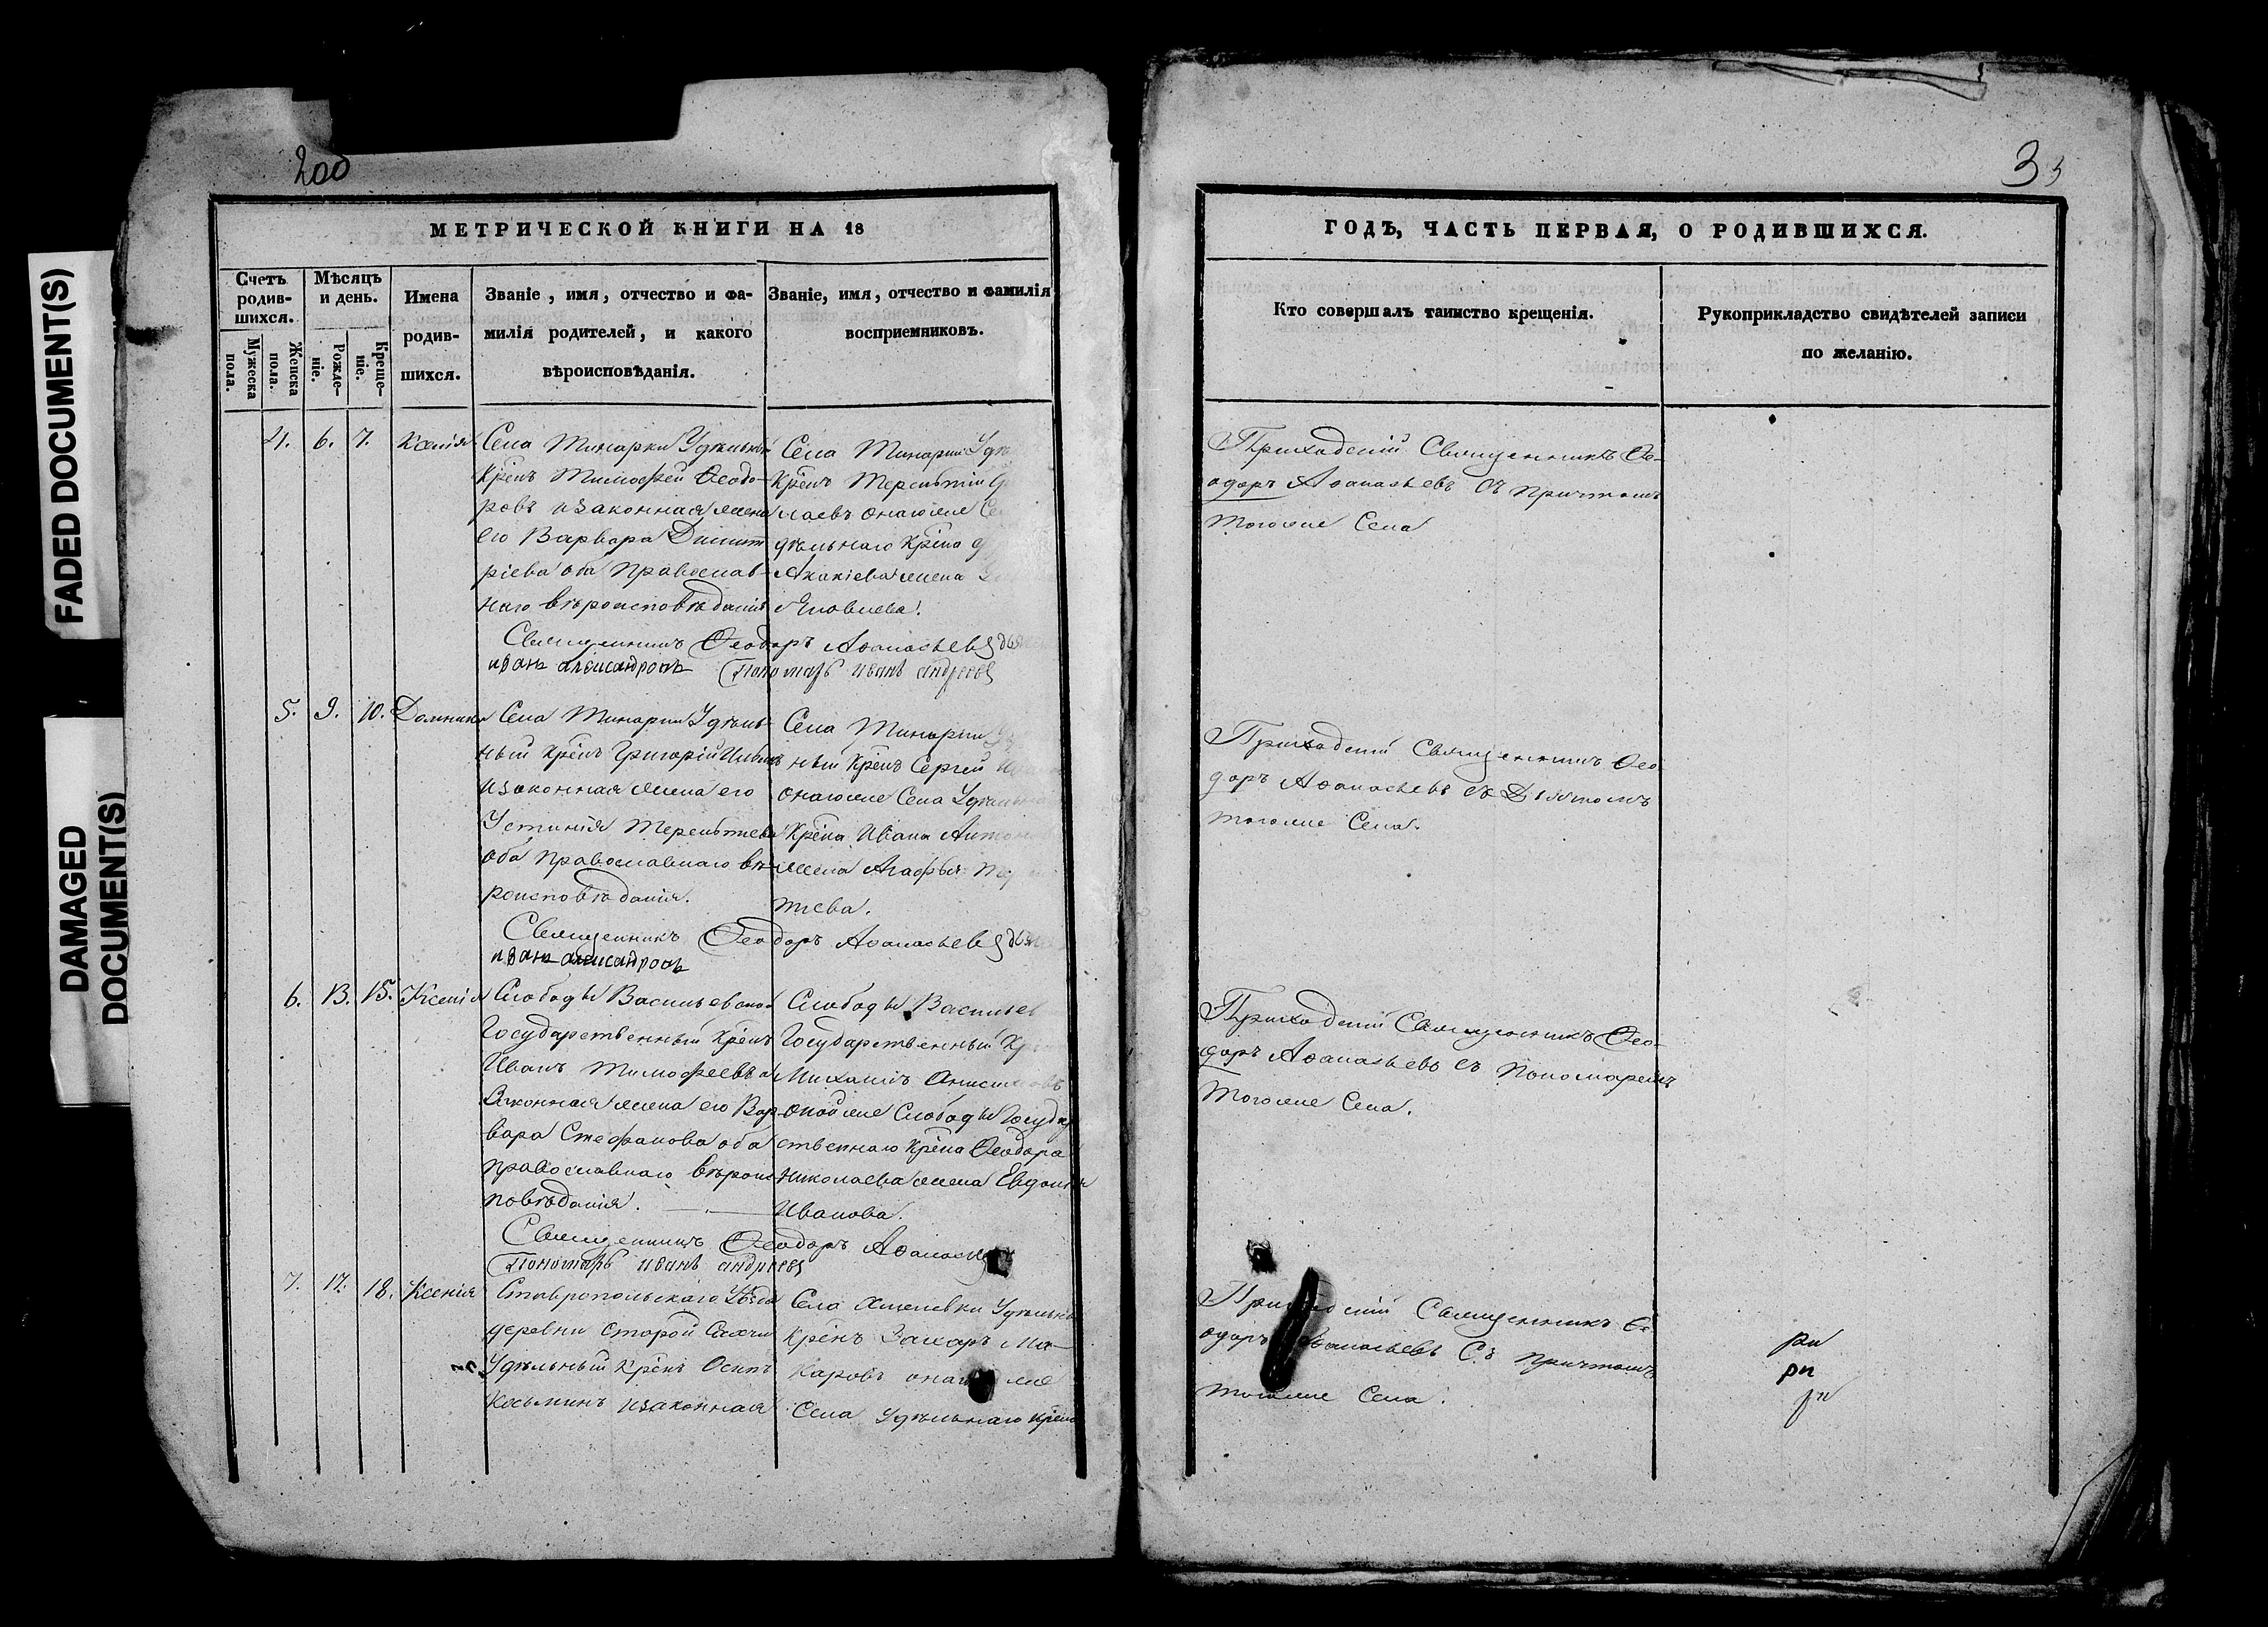 FADED DOCUMENT(S)
DAMAGED
DOCUMENT(S)
200
МЕТРИЧЕСКОЙ КНИГИ НА 18
Счетъ родив-шихся.
Мужеска пола.
Женска пола.
Мѣсяцъ и день.
Рожде-ніе.
Креще-ніе.
Имена родив-шихся.
Званіе, имя, отчество и фа-
милія родителей, и какого
вѣроисповѣданія.
Званіе, имя, отчество и фамилія
восприемниковъ.
4. 6. 7. Ксенія
Села Тинарки Удѣльный
Крѣнъ Тимофей Ѳеодо-
ровъ изаконная жена
его Варвара Димит
ріева оба Православ-
наго вѣроисповѣданія
Села Тинарки
Крѣнъ Терентій
лаевъ онагоже
дѣльнаго Крѣна
Акакіева жена
Яковлева.
Священникъ Ѳеодоръ Аѳанасьевъ
иванъ александровъ Пономарь иванъ андреевъ
5. 9. 10. Домника
Села Тинарки Удѣль-
ный Крѣнъ Григорій
изаконная жена его
Устинія Терентьева
оба православнаго вѣ-
роисповѣданія.
Села Тинарки
ный Крѣнъ Сергей
онагоже Села
Крѣна Ивана
жена Агафья
тьева.
Священникъ Ѳеодоръ Аѳанасьевъ
иванъ александровъ
6. 13. 15. Ксенія
Слободы Васильевской
Государственный Крѣнъ
Иванъ Тимофеевъ и
законная жена его Вар-
вара Стефанова оба
православнаго вѣроис
повѣданія.
Слободы
Государственный
Михаилъ Анисимовъ
онойже Слободы
ственнаго Крѣна Ѳеодора
Николаева жена Евдокія
Иванова.
Священникъ Ѳеодоръ Аѳанасьевъ
Пономарь иванъ андреевъ
7. 17. 18. Ксенія
Ставропольскаго Уѣзда
деревни Старой
Удѣльный Крѣнъ Осипъ
Косьминъ изаконная
Села Удѣльный
Крѣнъ Захаръ Ма-
каровъ
Села Удѣльнаго Крѣна
35
ГОДЪ, ЧАСТЬ ПЕРВАЯ, О РОДИВШИХСЯ.
Кто совершалъ таинство крещенія.
Рукоприкладство свидѣтелей записи
по желанію.
Приходскій Священникъ Ѳе-
одоръ Аѳанасьевъ съ причтомъ
тогоже Села
Приходскій Священникъ Ѳео
доръ Аѳанасьевъ съ Дьячкомъ
тогоже Села.
Приходскій Священникъ Ѳео-
доръ Аѳанасьевъ съ Пономаремъ
тогоже Села.
Приходскій Священникъ Ѳе
одоръ Аѳанасьевъ Съ причтомъ
тогоже Села.